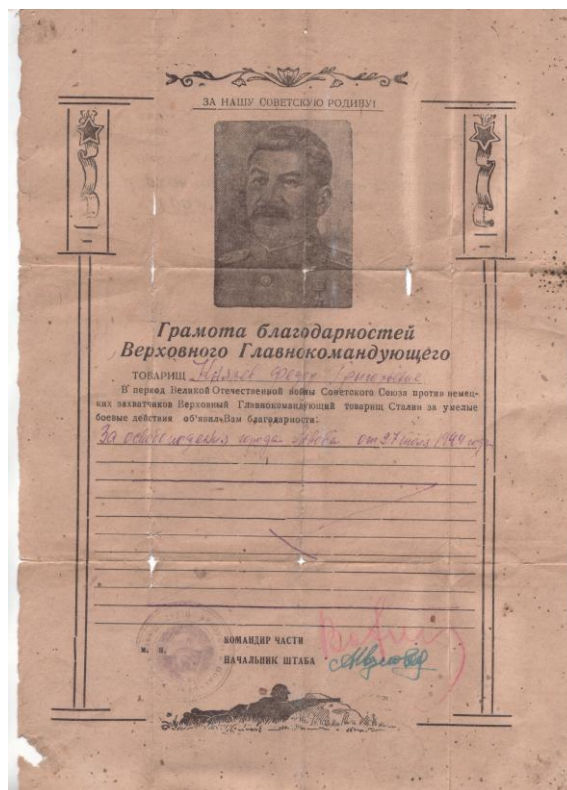 ЗА НАШУ СОВЕТСКУЮ РОДИНУ!
Грамота благодарностей
Верховного Главнокомандующего
ТОВАРИЩ
В период Великой Отечественной войны Советского Союза против немец-
ких захватчиков Верховный Главнокомандующий товарищ Сталин за умелые
боевые действия об'явил Вам благодарности:
За освобождения города Львова от 27 июля 1944 года
КОМАНДИР ЧАСТИ
м. п.
НАЧАЛЬНИК ШТАБА